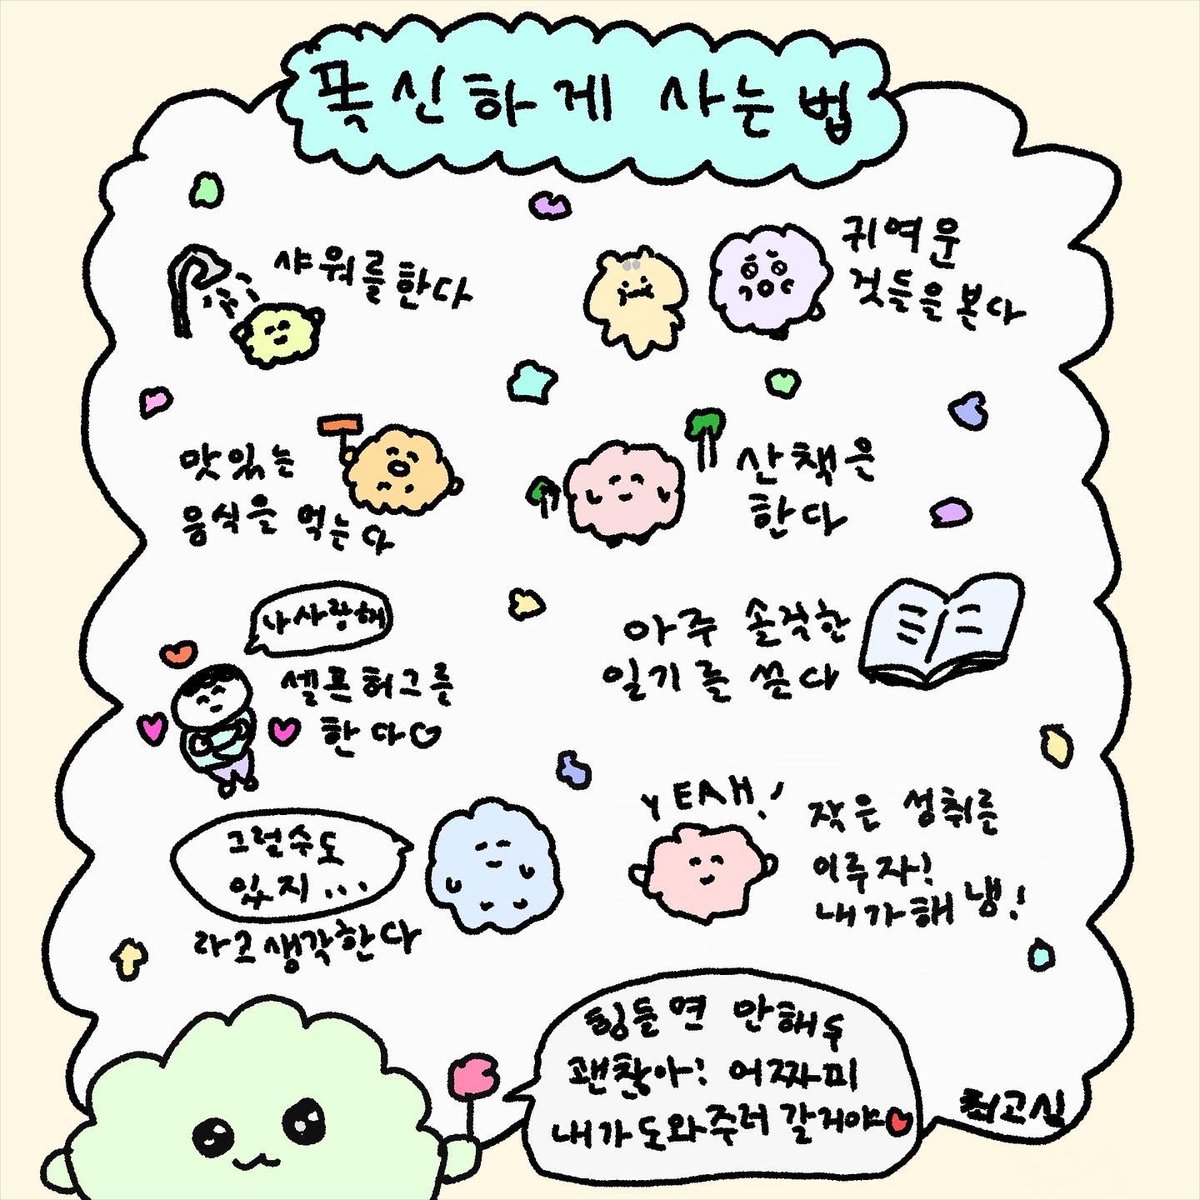 폭신하게 사는 법
샤워를 한다
귀여운
것들을 본다
맛있는
음식을 먹는다
산책은
한다
나 사랑해
셀프허그를
한다♡
아주 솔직한
일기를 쓴다
그럴수도
있지...
라고 생각한다
YEAH!
작은 성취를
이루자!
내가해냉!
힝들면 안해두
괜찮아! 어짜피
내가 도와주러 갈거야
최고심